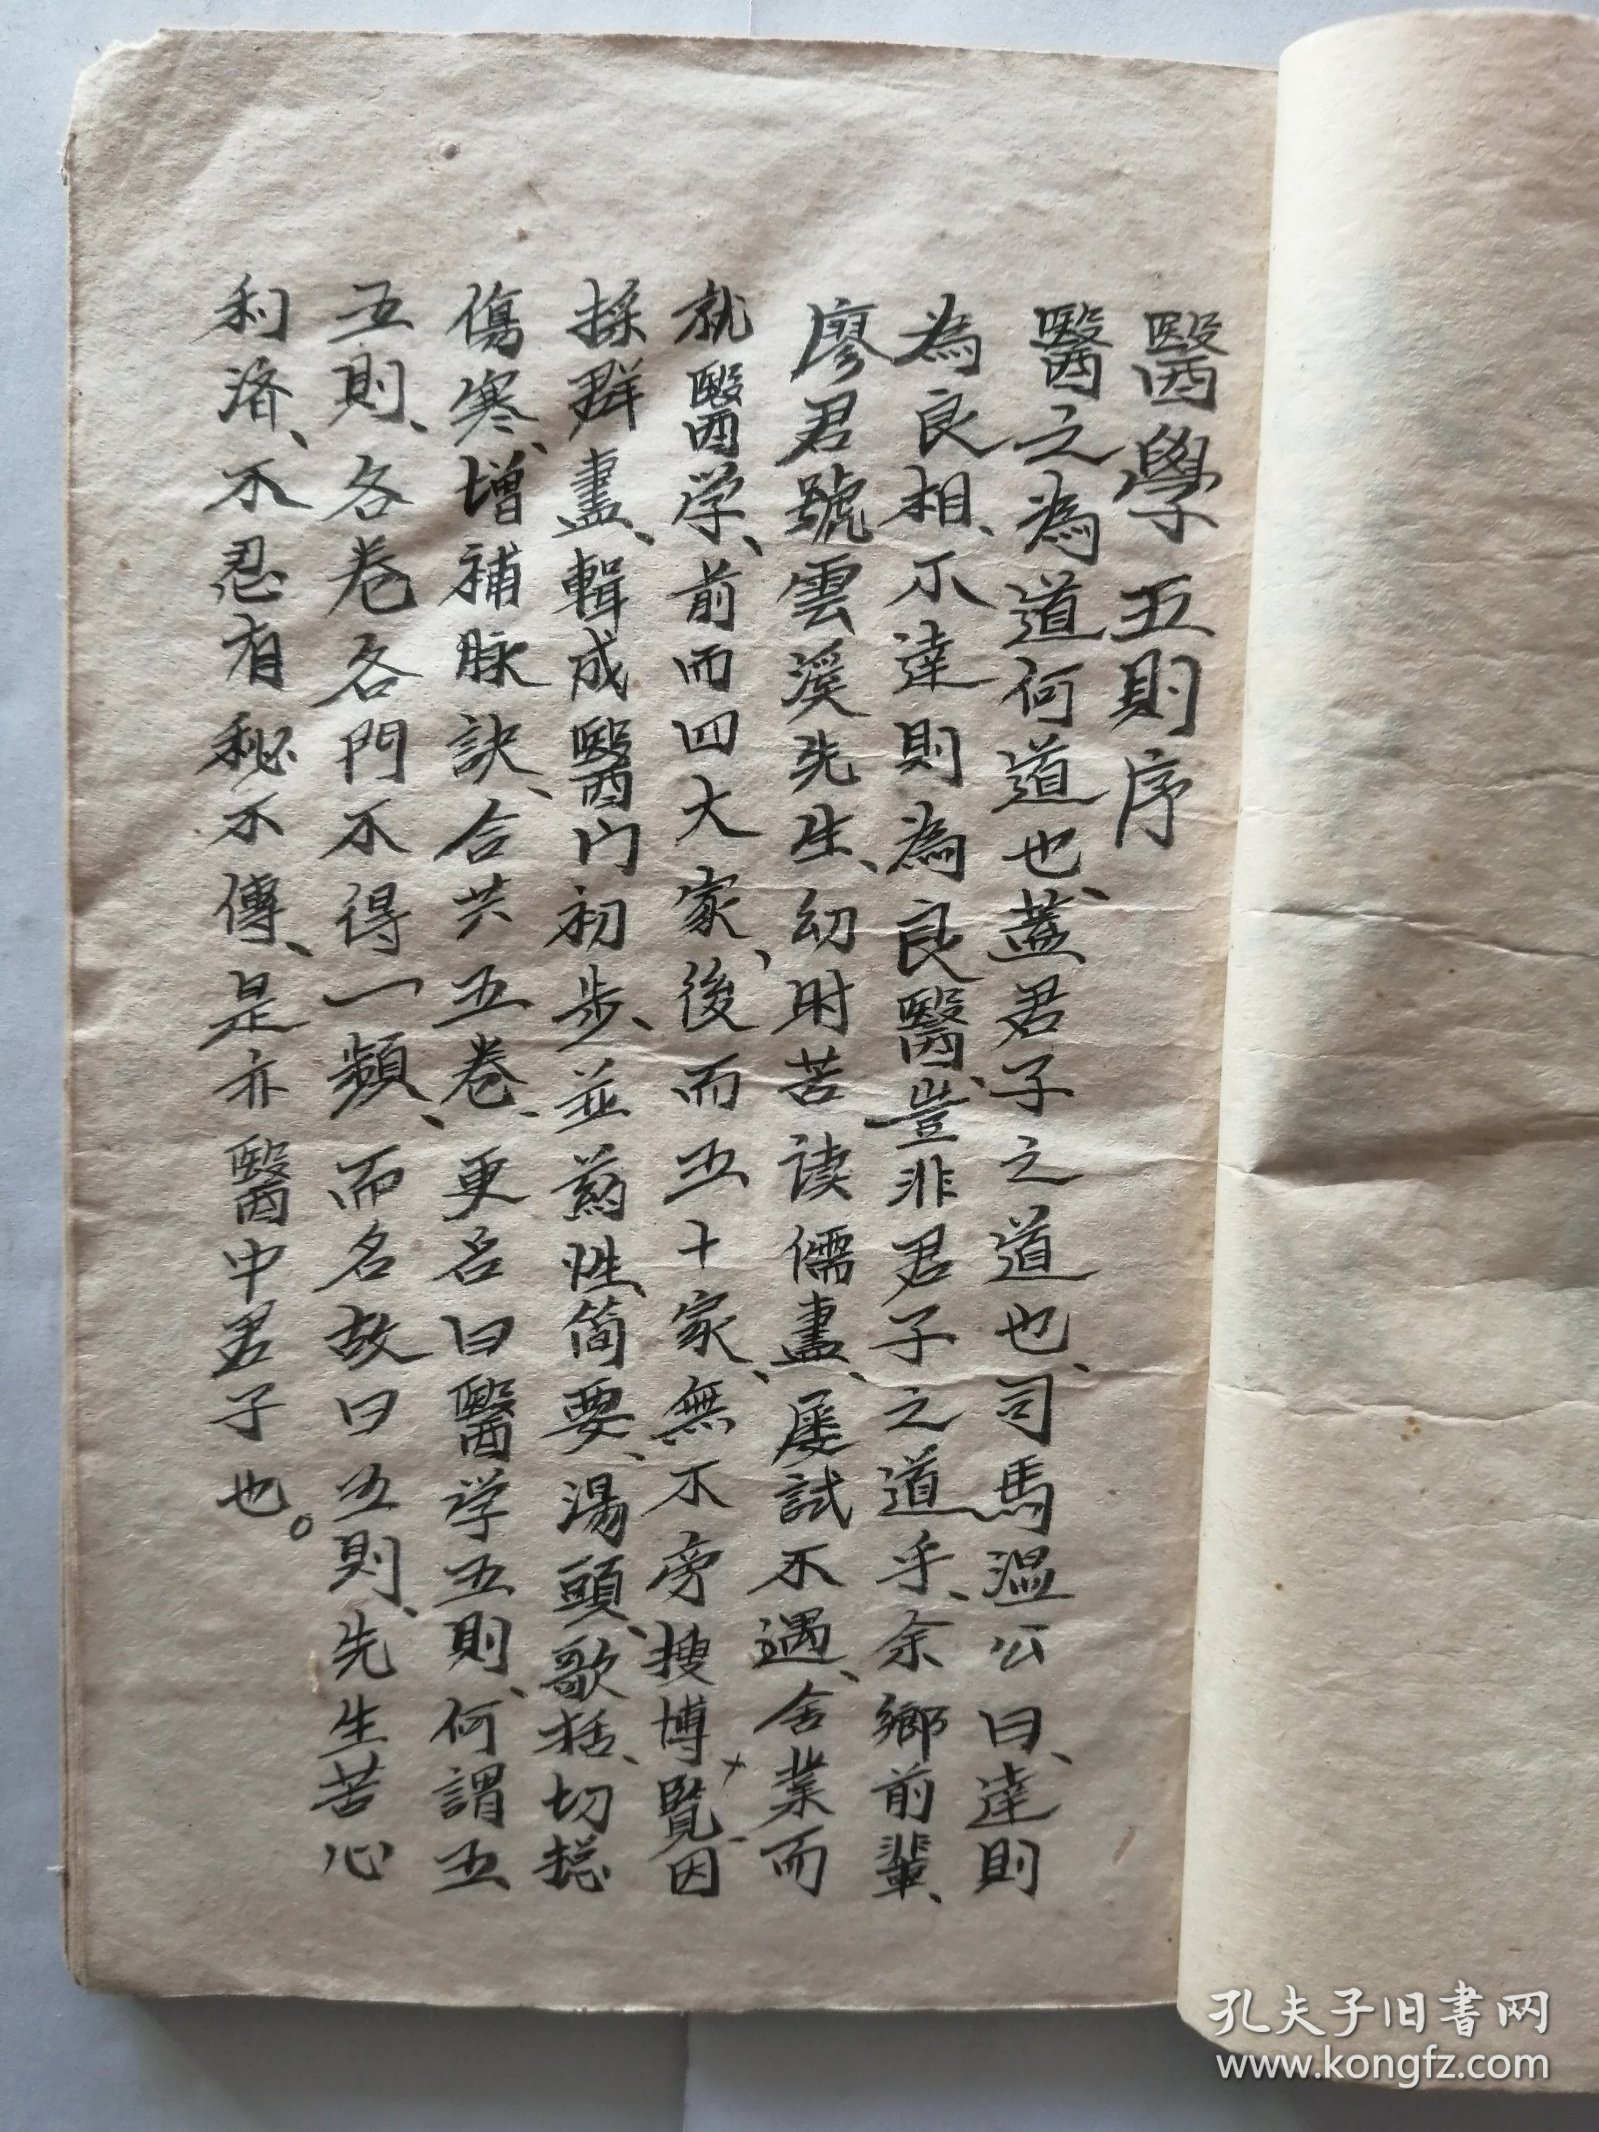 醫學五則序
醫之為道何道也、蓋君子之道也、司馬溫公曰、達則
為良相、不達則為良醫、豈非君子之道乎、余鄉前輩、
廖君號雲溪先生、幼时苦读儒書、屡試不遇、舍業而
就醫学、前而四大家、後而五十家、無不旁搜博覧、因
採群書、輯成醫门初步、並药性简要、湯頭歌括、切総
傷寒、增補脉訣、合共五卷、更名曰醫学五則、何謂五
五則、各卷各門不得一類、而名故曰五則、先生苦心
利济、不忍有秘不傳、是亦醫中君子也。
孔夫子旧书网
www.kongfz.com